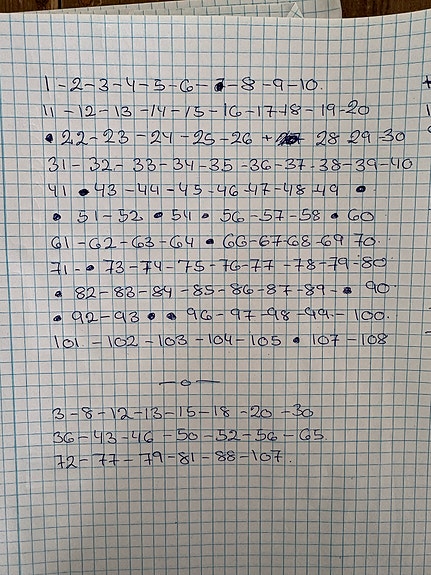 1-2-3-4-5-6-7-8-9-10.
11-12-13-14-15-16-17-18-19-20
• 22-23-24-25-26 + 28 29-30
31-32-33-34-35-36-37-38-39-40
41 • 43-44-45-46-47-48-49 •
• 51-52 • 54 • 56-57-58 • 60
61-62-63-64 • 66-67-68-69 70.
71- • 73-74-75-76-77-78-79-80
• 82-83-84-85-86-87-89- • 90
• 92-93 • • 96-97-98-99-100.
101-102-103-104-105 • 107-108
—o—
3-8-12-13-15-18-20-30
36-43-46-50-52-56-65.
72-77-79-81-88-107.